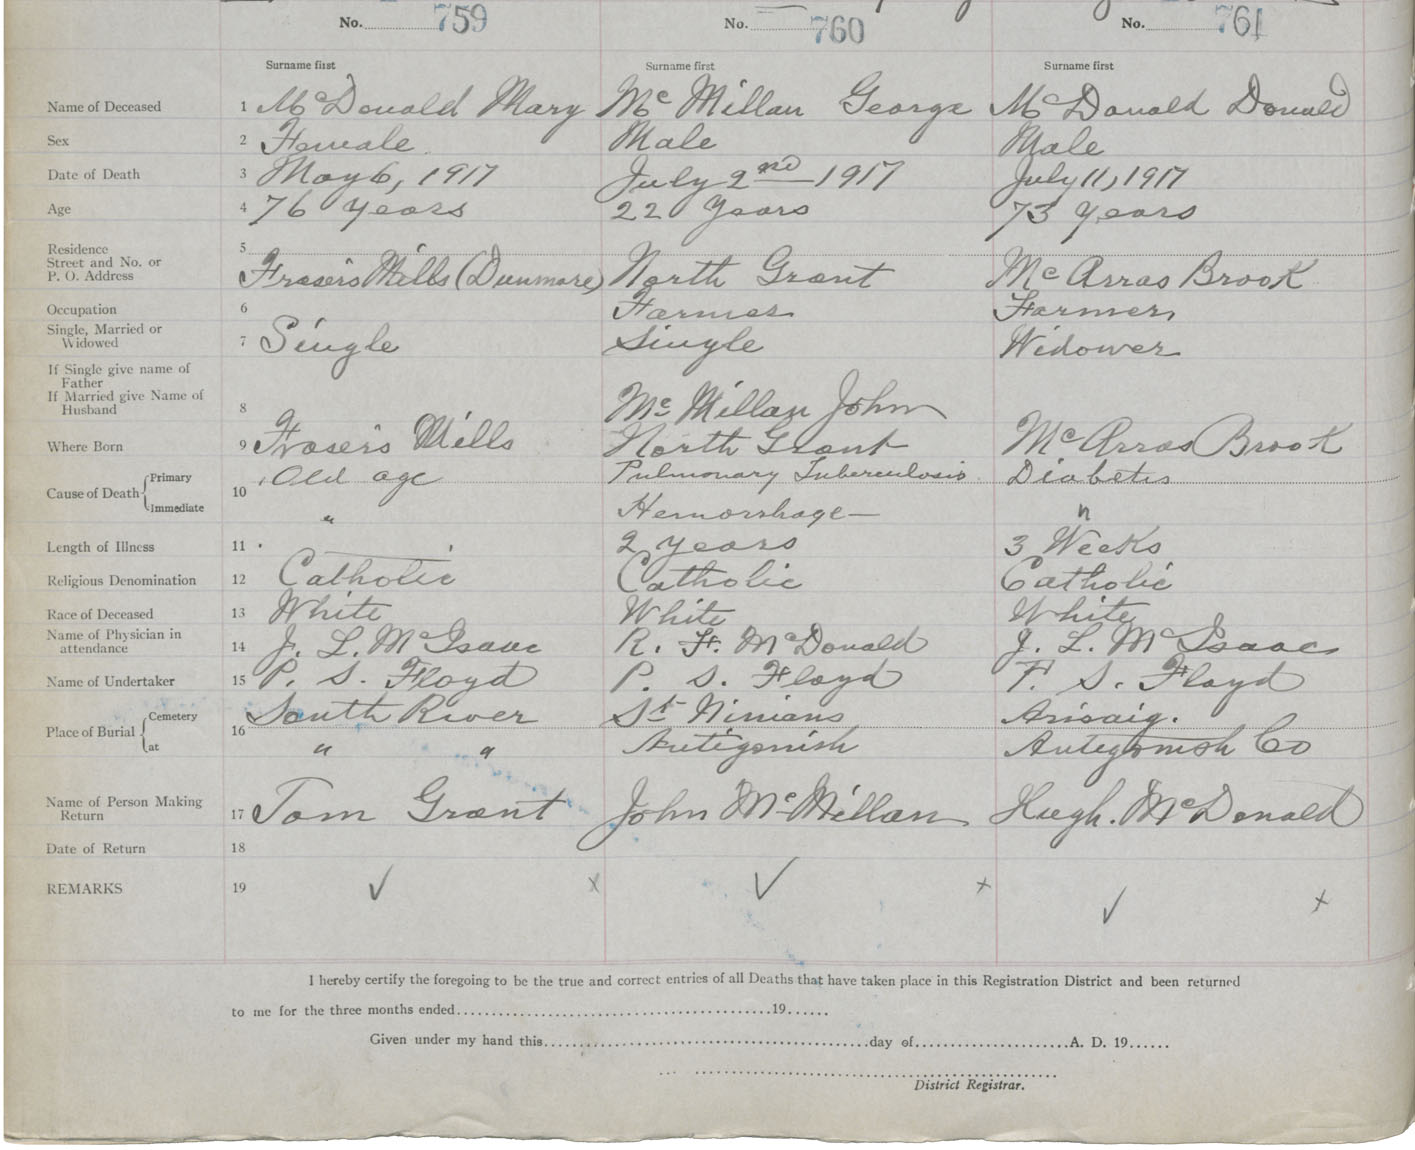 No. 759 No. 760 No. 761
Surname first Surname first Surname first
Name of Deceased 1 McDonald Mary McMillan George McDonald Donald
Sex 2 Female Male Male
Date of Death 3 May 6, 1917 July 2nd 1917 July 11, 1917
Age 4 76 years 22 years 73 years
Residence 5
Street and No. or
P. O. Address Frasers Mills (Dunmore) North Grant McArras Brook
Occupation 6 Farmer Farmer
Single, Married or
Widowed 7 Single Single Widower
If Single give name of
Father
If Married give Name of
Husband 8 McMillan John
Where Born 9 Frasers Mills North Grant McArras Brook
Cause of Death Primary 10 Old age Pulmonary Tuberculosis Diabetis
Immediate " Hemorrhage— "
Length of Illness 11 2 years 3 Weeks
Religious Denomination 12 Catholic Catholic Catholic
Race of Deceased 13 White White White
Name of Physician in
attendance 14 J. L. McIsaac R. F. McDonald J. L. McIsaac
Name of Undertaker 15 P. S. Floyd P. S. Floyd P. S. Floyd
Place of Burial Cemetery 16 South River St Ninians Arisaig.
at " " Antigonish Antigonish Co
Name of Person Making
Return 17 Tom Grant John McMillan Hugh. McDonald
Date of Return 18
REMARKS 19 ✓ x ✓ + ✓ +
I hereby certify the foregoing to be the true and correct entries of all Deaths that have taken place in this Registration District and been returned
to me for the three months ended..........19......
Given under my hand this..........day of..........A. D. 19......
District Registrar.